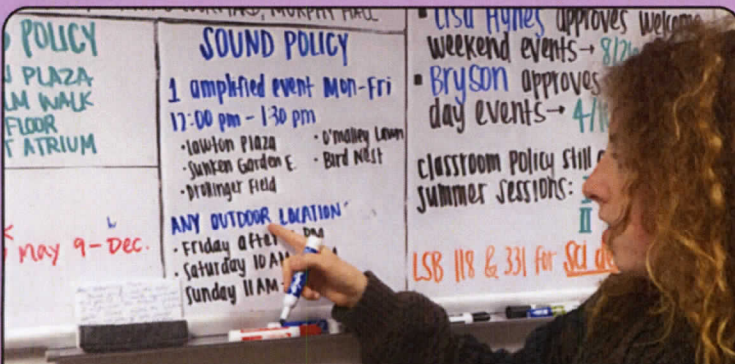 MURPHY HALL
POLICY
PLAZA
LM WALK
FLOOR
T ATRIUM
may 9-Dec.
SOUND POLICY
1 amplified event Mon-Fri
12:00 pm - 1:30 pm
• Lawton Plaza
• Sunken Garden E.
• Drollinger Field
• O'malley Lawn
• Bird Nest
ANY OUTDOOR LOCATION
• Friday after PM
• Saturday 10 AM
Sunday 11 AM-
• Lisa Hynes approves welcome
weekend events→ 8/2
• Bryson approves
day events→ 4/1
classroom policy still
summer sessions: I
II
LSB 118 & 331 for Sci